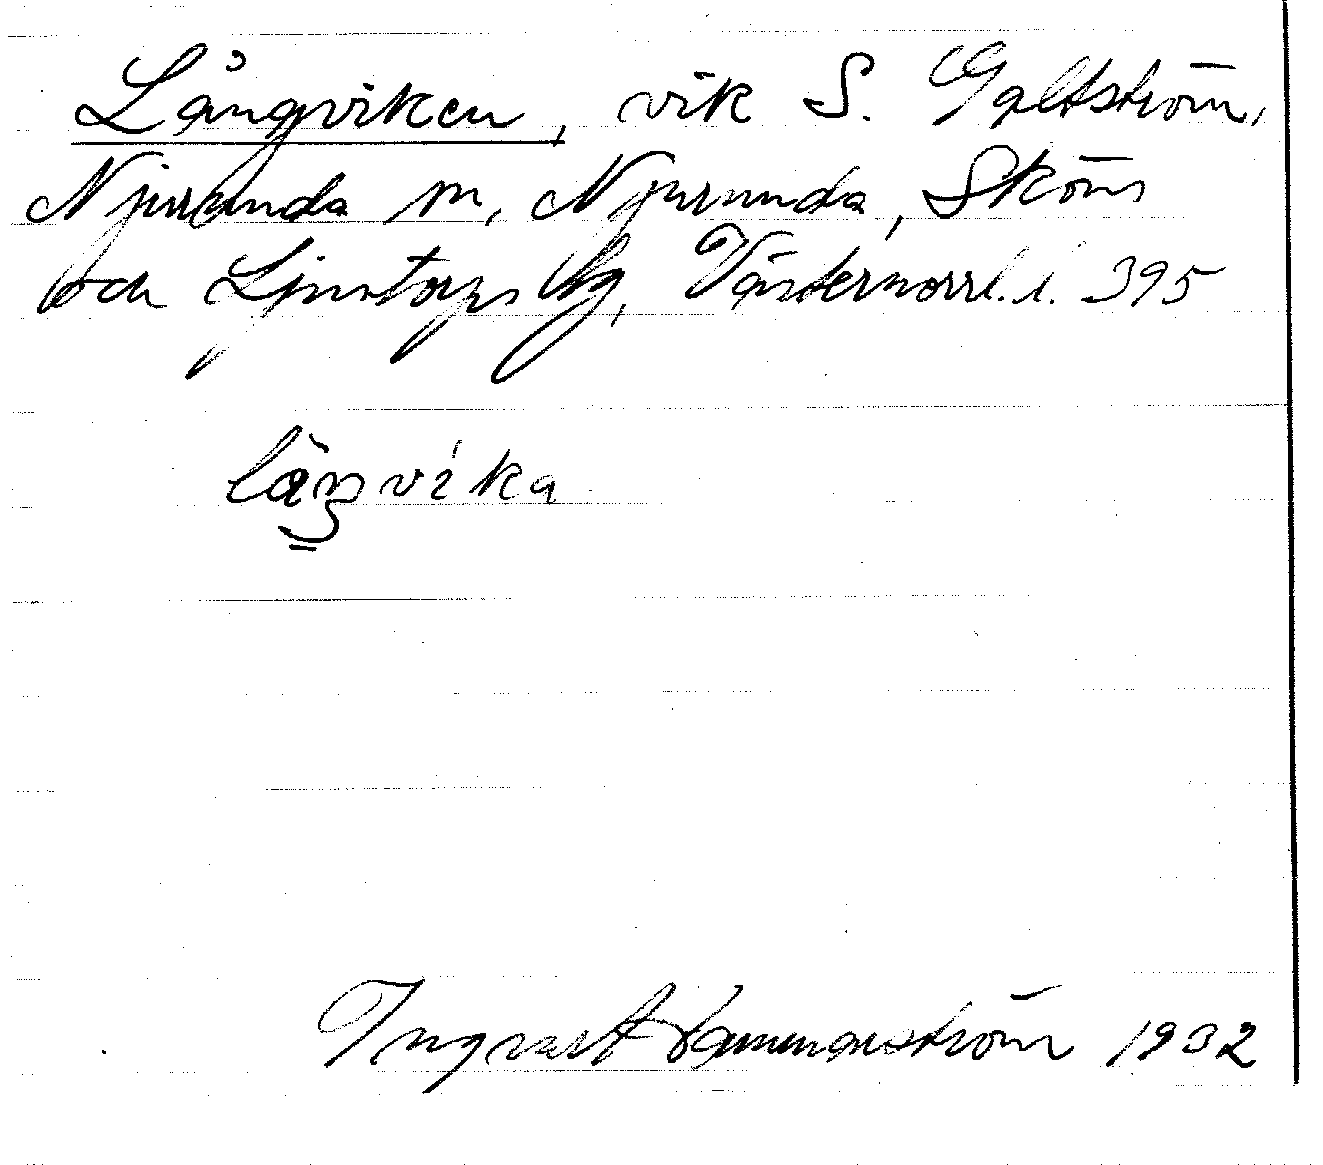 Långviken, vik S. Galtström,
Njurunda sn, Njurunda, Sköns
och Ljustorps tg, Västernorrl. l. 395
låŋvika
Ingvar Hammarström 1932